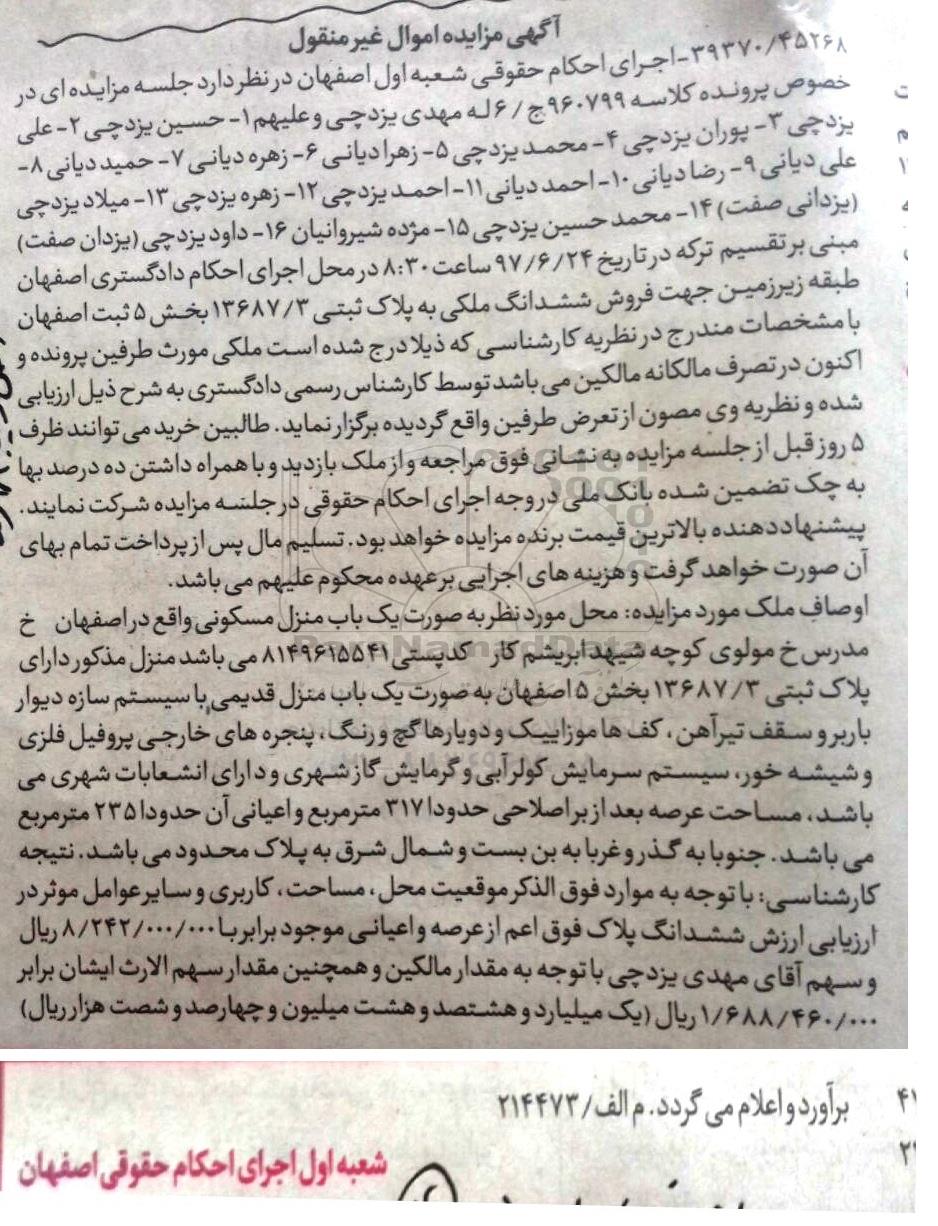 آگهی مزایده اموال غیر منقول
۳۹۳۷۰/۴۵۲۶۸- اجرای احکام حقوقی شعبه اول اصفهان در نظر دارد جلسه مزایده ای در
خصوص پرونده کلاسه ۹۶۰۷۹۹ج/۶ له مهدی یزدچی و علیهم ۱- حسین یزدچی ۲- علی
یزدچی ۳- پوران یزدچی ۴- محمد یزدچی ۵- زهرا دیانی ۶- زهره دیانی ۷- حمید دیانی ۸-
علی دیانی ۹- رضا دیانی ۱۰- احمد دیانی ۱۱- احمد یزدچی ۱۲- زهره یزدچی ۱۳- میلاد یزدچی
(یزدانی صفت) ۱۴- محمد حسین یزدچی ۱۵- مژده شیروانیان ۱۶- داود یزدچی (یزدان صفت)
مبنی بر تقسیم ترکه در تاریخ ۹۷/۶/۲۴ ساعت ۸:۳۰ در محل اجرای احکام دادگستری اصفهان
طبقه زیرزمین جهت فروش ششدانگ ملکی به پلاک ثبتی ۱۳۶۸۷/۳ بخش ۵ ثبت اصفهان
با مشخصات مندرج در نظریه کارشناسی که ذیلا درج شده است ملکی مورث طرفین پرونده و
اکنون در تصرف مالکانه مالکین می باشد توسط کارشناس رسمی دادگستری به شرح ذیل ارزیابی
شده و نظریه وی مصون از تعرض طرفین واقع گردیده برگزار نماید. طالبین خرید می توانند ظرف
۵ روز قبل از جلسه مزایده به نشانی فوق مراجعه و از ملک بازدید و با همراه داشتن ده درصد بها
به چک تضمین شده بانک ملی در وجه اجرای احکام حقوقی در جلسه مزایده شرکت نمایند.
پیشنهاد دهنده بالاترین قیمت برنده مزایده خواهد بود. تسلیم مال پس از پرداخت تمام بهای
آن صورت خواهد گرفت و هزینه های اجرایی بر عهده محکوم علیهم می باشد.
اوصاف ملک مورد مزایده: محل مورد نظر به صورت یک باب منزل مسکونی واقع در اصفهان خ
مدرس خ مولوی کوچه شهید ابریشم کار کدپستی ۸۱۴۹۶۱۵۵۴۱ می باشد منزل مذکور دارای
پلاک ثبتی ۱۳۶۸۷/۳ بخش ۵ اصفهان به صورت یک باب منزل قدیمی با سیستم سازه دیوار
باربر و سقف تیرآهن، کف ها موزاییک و دویارها گچ و رنگ، پنجره های خارجی پروفیل فلزی
و شیشه خور، سیستم سرمایش کولر آبی و گرمایش گاز شهری و دارای انشعابات شهری می
باشد، مساحت عرصه بعد از بر اصلاحی حدودا ۳۱۷ مترمربع و اعیانی آن حدودا ۲۳۵ مترمربع
می باشد. جنوبا به گذر و غربا به بن بست و شمال شرق به پلاک محدود می باشد. نتیجه
کارشناسی: با توجه به موارد فوق الذکر موقعیت محل، مساحت، کاربری و سایر عوامل موثر در
ارزیابی ارزش ششدانگ پلاک فوق اعم از عرصه و اعیانی موجود برابر با ۸/۲۴۲/۰۰۰/۰۰۰ ریال
و سهم آقای مهدی یزدچی با توجه به مقدار مالکین و همچنین مقدار سهم الارث ایشان برابر
۱/۶۸۸/۴۶۰/۰۰۰ ریال (یک میلیارد و هشتصد و هشت میلیون و چهارصد و شصت هزار ریال)
برآورد و اعلام می گردد. م الف/۲۱۴۴۷۳
شعبه اول اجرای احکام حقوقی اصفهان
ParsNamadData